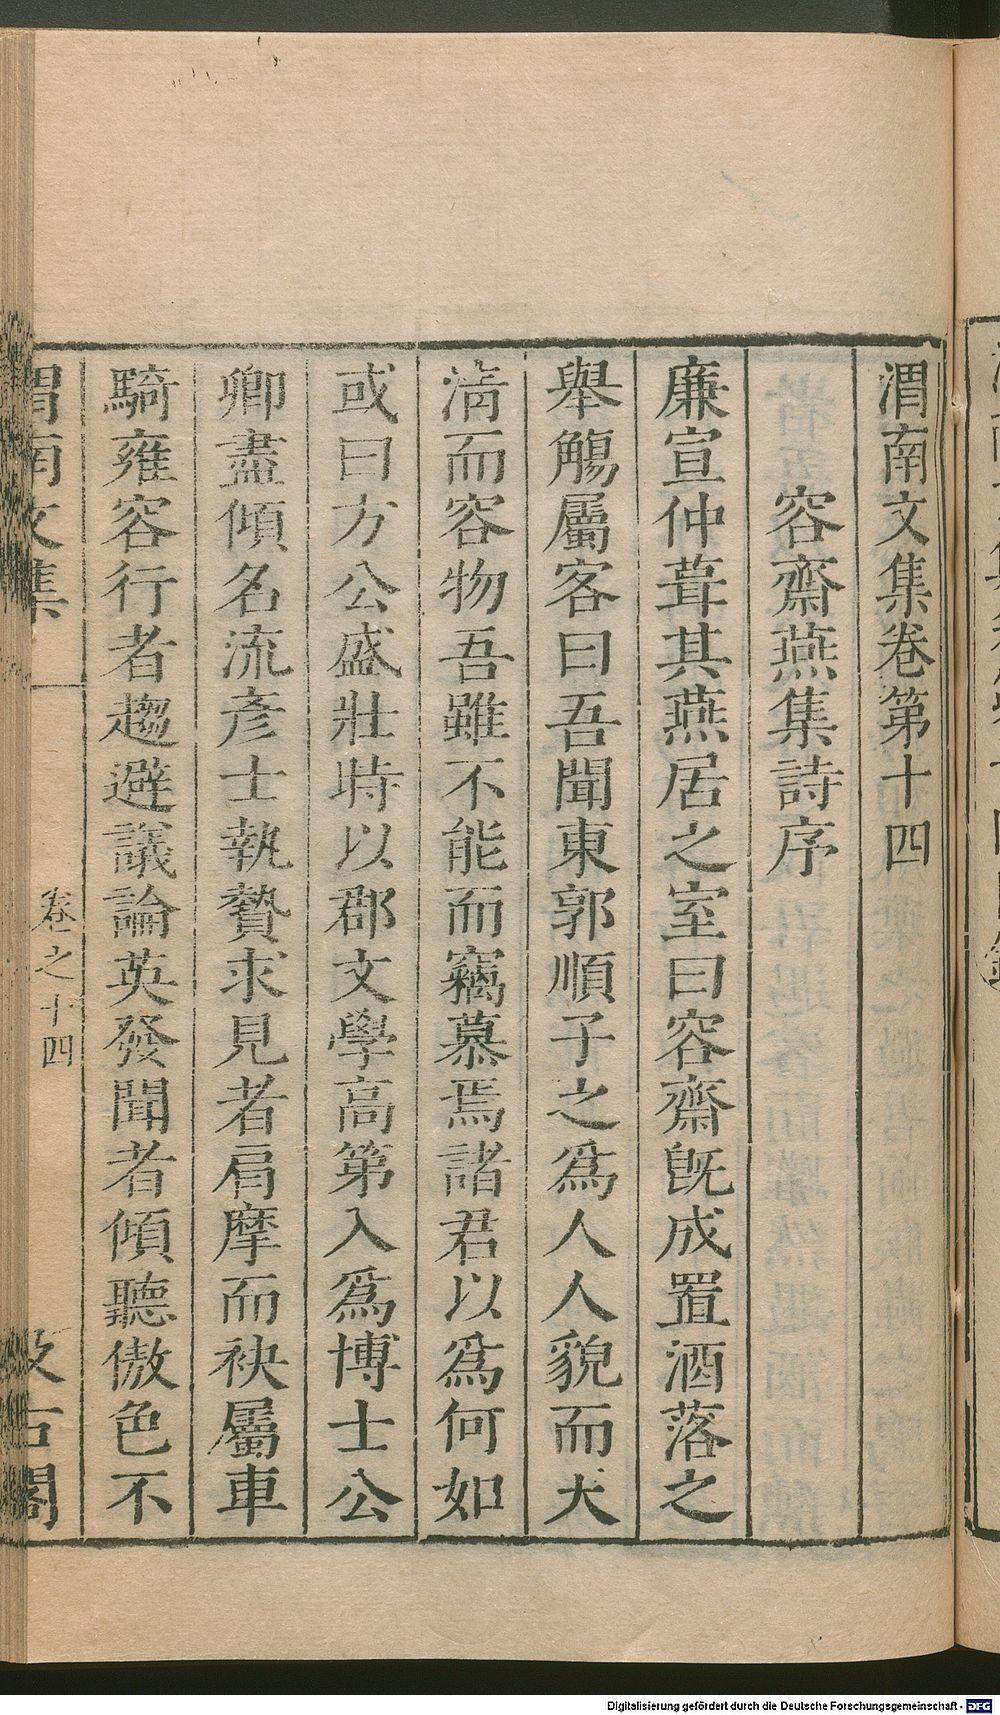 渭南文集卷第十四
容齋燕集詩序
廉宣仲葺其燕居之室曰容齋旣成置酒落之
舉觴屬客曰吾聞東郭順子之爲人人貌而天
淸而容物吾雖不能而竊慕焉諸君以爲何如
或曰方公盛壯時以郡文學高第入爲博士公
卿盡傾名流彥士執贄求見者肩摩而袂屬車
騎雍容行者趨避議論英發聞者傾聽傲色不
渭南文集
卷之十四
汲古閣
Digitalisierung gefördert durch die Deutsche Forschungsgemeinschaft - DFG